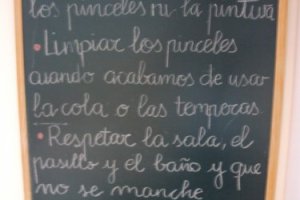 los pinceles ni la pintura
• Limpiar los pinceles
cuando acabamos de usar
la cola o las temperas
• Respetar la sala, el
pasillo y el baño y que
no se manche